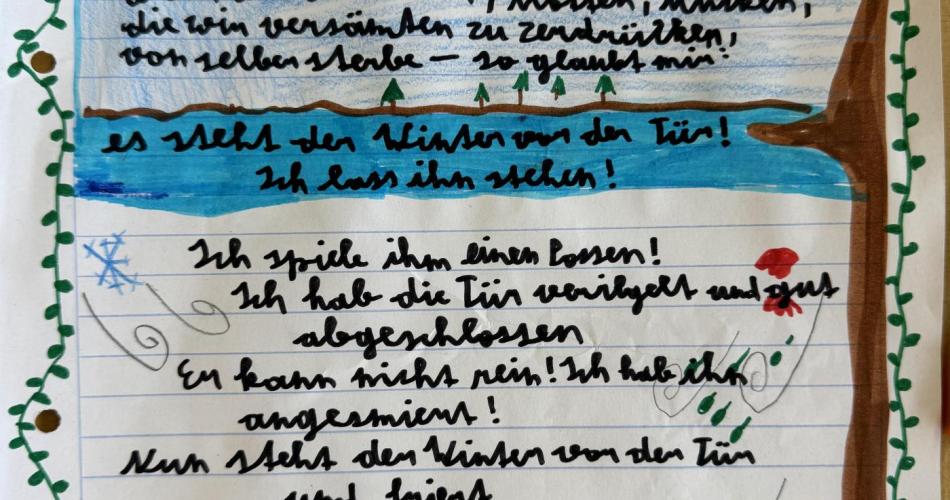 Motten, Mücken,
die wir versämten zu zerdrücken,
von selber sterbe – so glaubt mir:
es steht der Winter vor der Tür!
Ich lass ihn stehen!
Ich spiele ihm einen Possen!
Ich hab die Tür verilgelt und gut
abgeschlossen
Er kann nicht rein! Ich hab ihn
angesmiert!
Nun steht der Winter vor der Tür
und friert